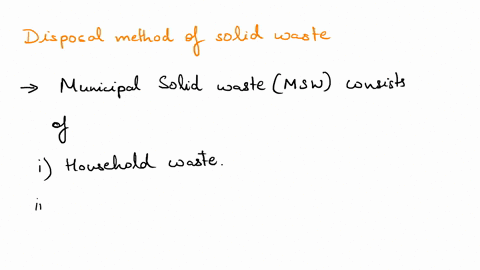 Disposal method of solid waste
→ Municipal Solid waste (MSW) consists
of
i) Household waste.
ii